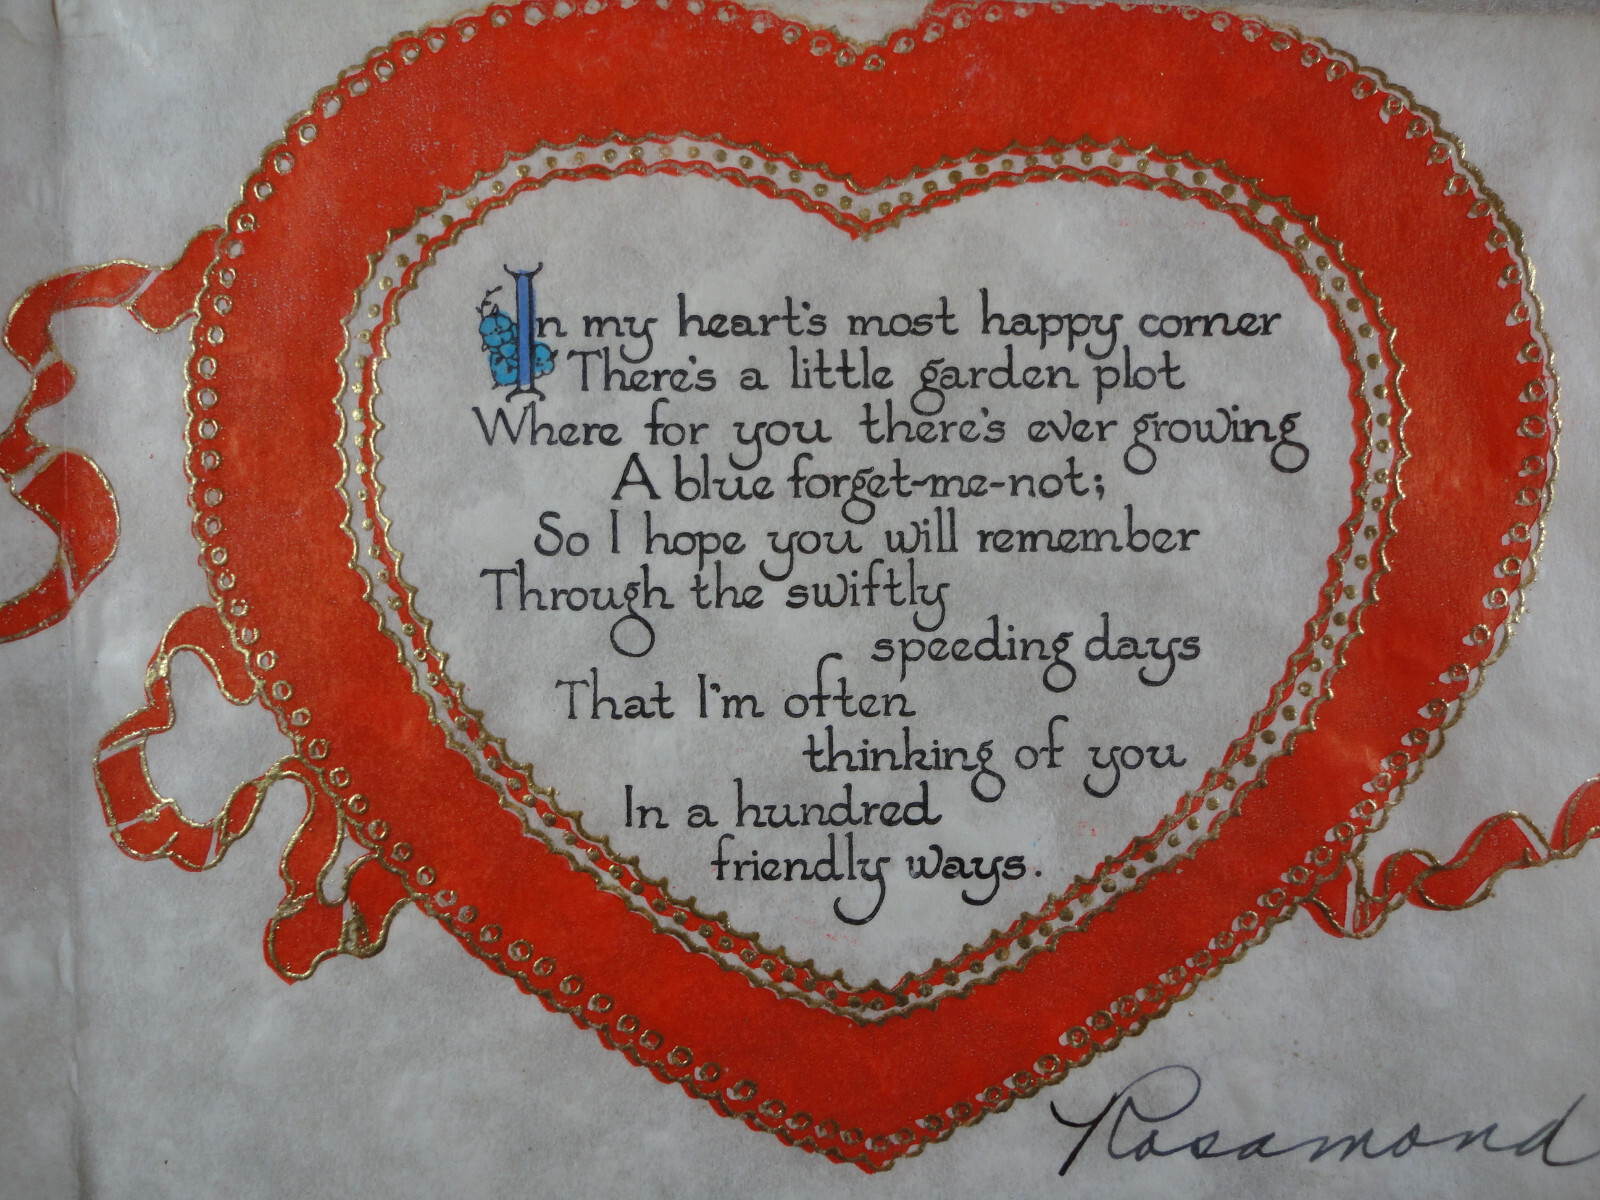 In my heart's most happy corner
There's a little garden plot
Where for you there's ever growing
A blue forget-me-not;
So I hope you will remember
Through the swiftly
speeding days
That I'm often
thinking of you
In a hundred
friendly ways.
Rosamond